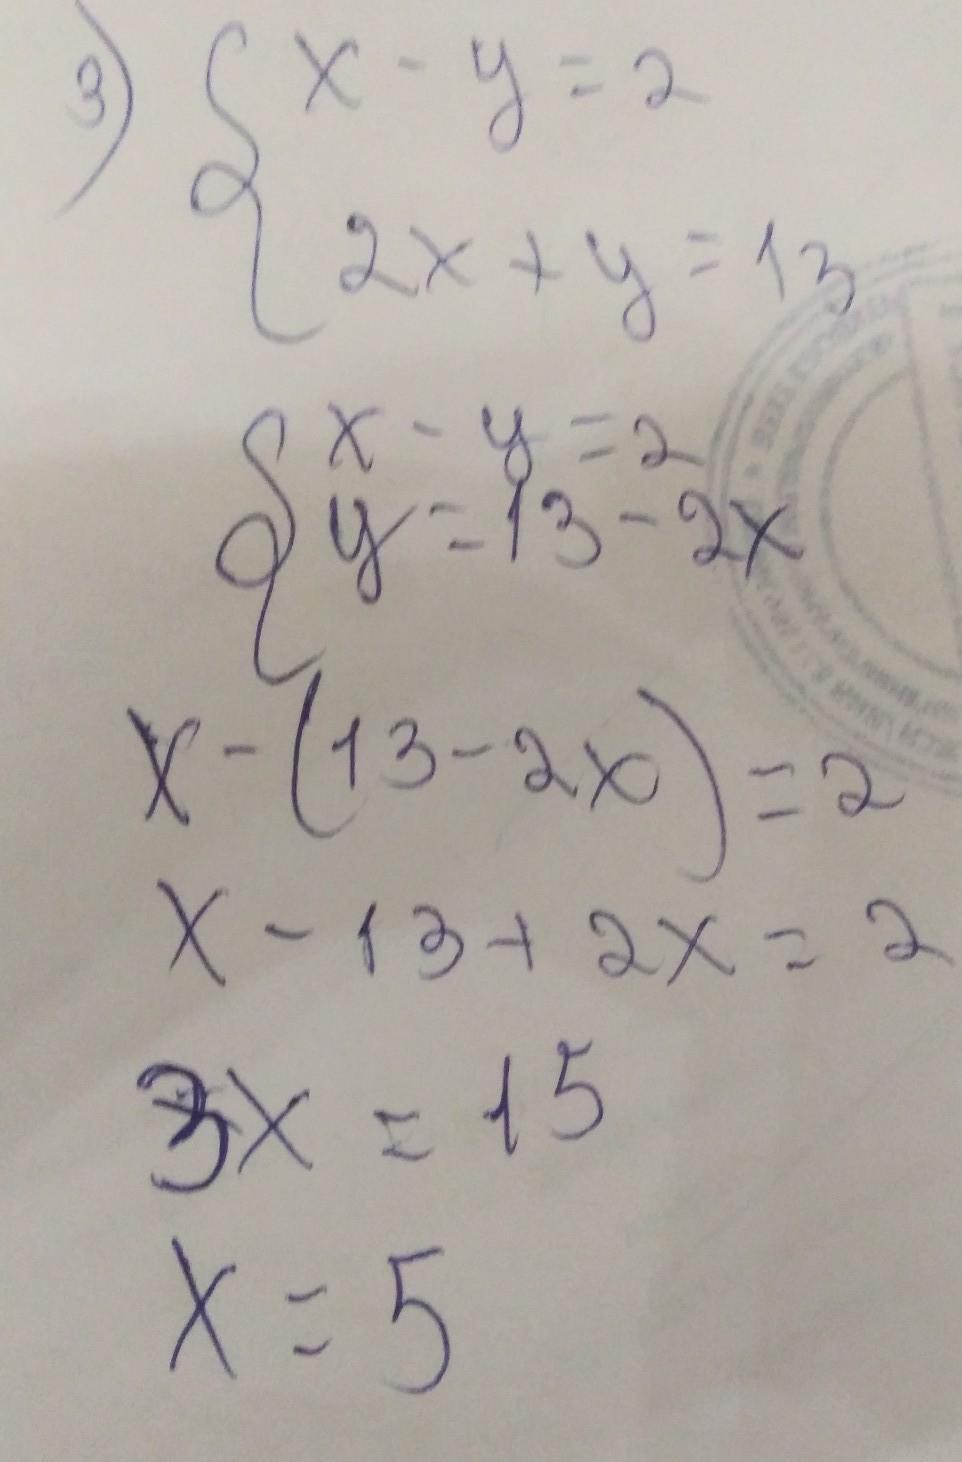 3) { x - y = 2
2x + y = 13
{ x - y = 2
y = 13 - 2x
x - (13 - 2x) = 2
x - 13 + 2x = 2
3x = 15
x = 5